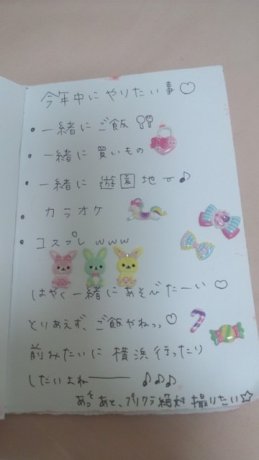 今年中にやりたい事♡
• 一緒にご飯
• 一緒に買いもの
• 一緒に遊園地♪
• カラオケ
• コスプレwww
はやく一緒にあそびたーい♡
とりあえずご飯やねっ♡
前みたいに横浜行ったり
したいよねー♪♪♪
あとあと、プリクラ絶対撮りたい☆